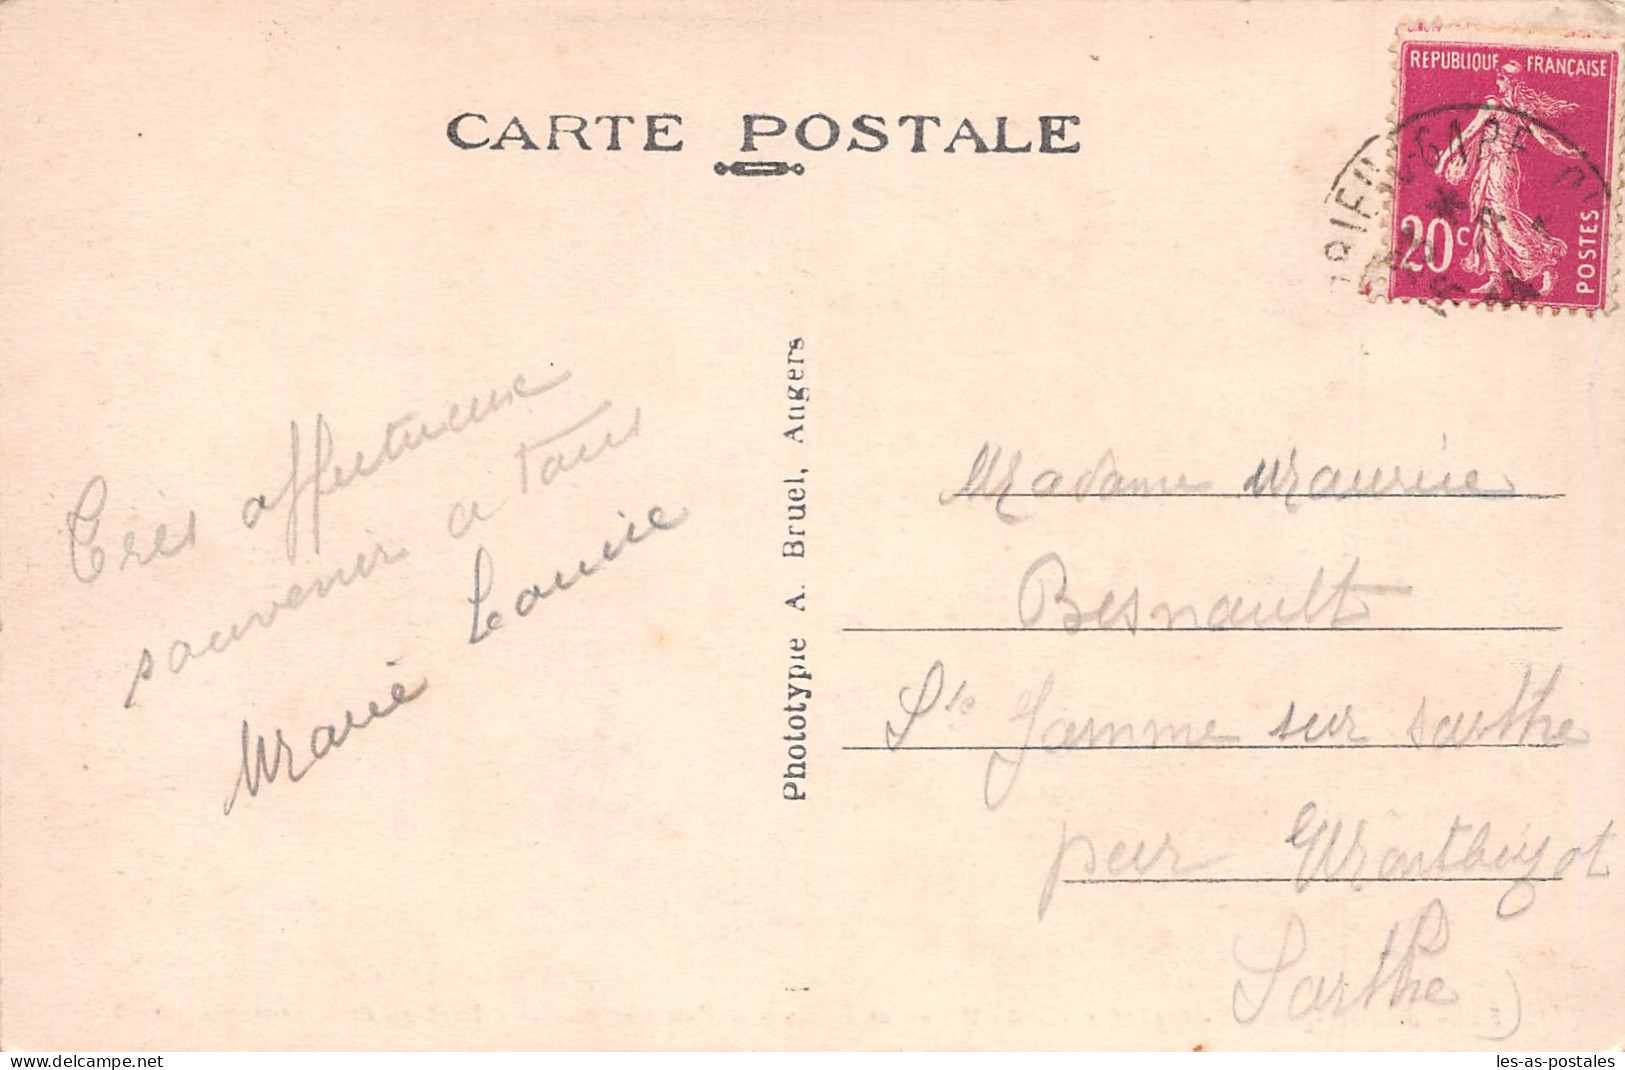 CARTE POSTALE
REPUBLIQUE FRANÇAISE
20c
POSTES
GARE
Très affectueux
souvenir a tous
Marie Louise
Phototypie A. Bruel, Angers
Madame Maurice
Besnault
Ste Jamme sur sarthe
par Montbizot
Sarthe)
website: delcampe.net
les-as-postales